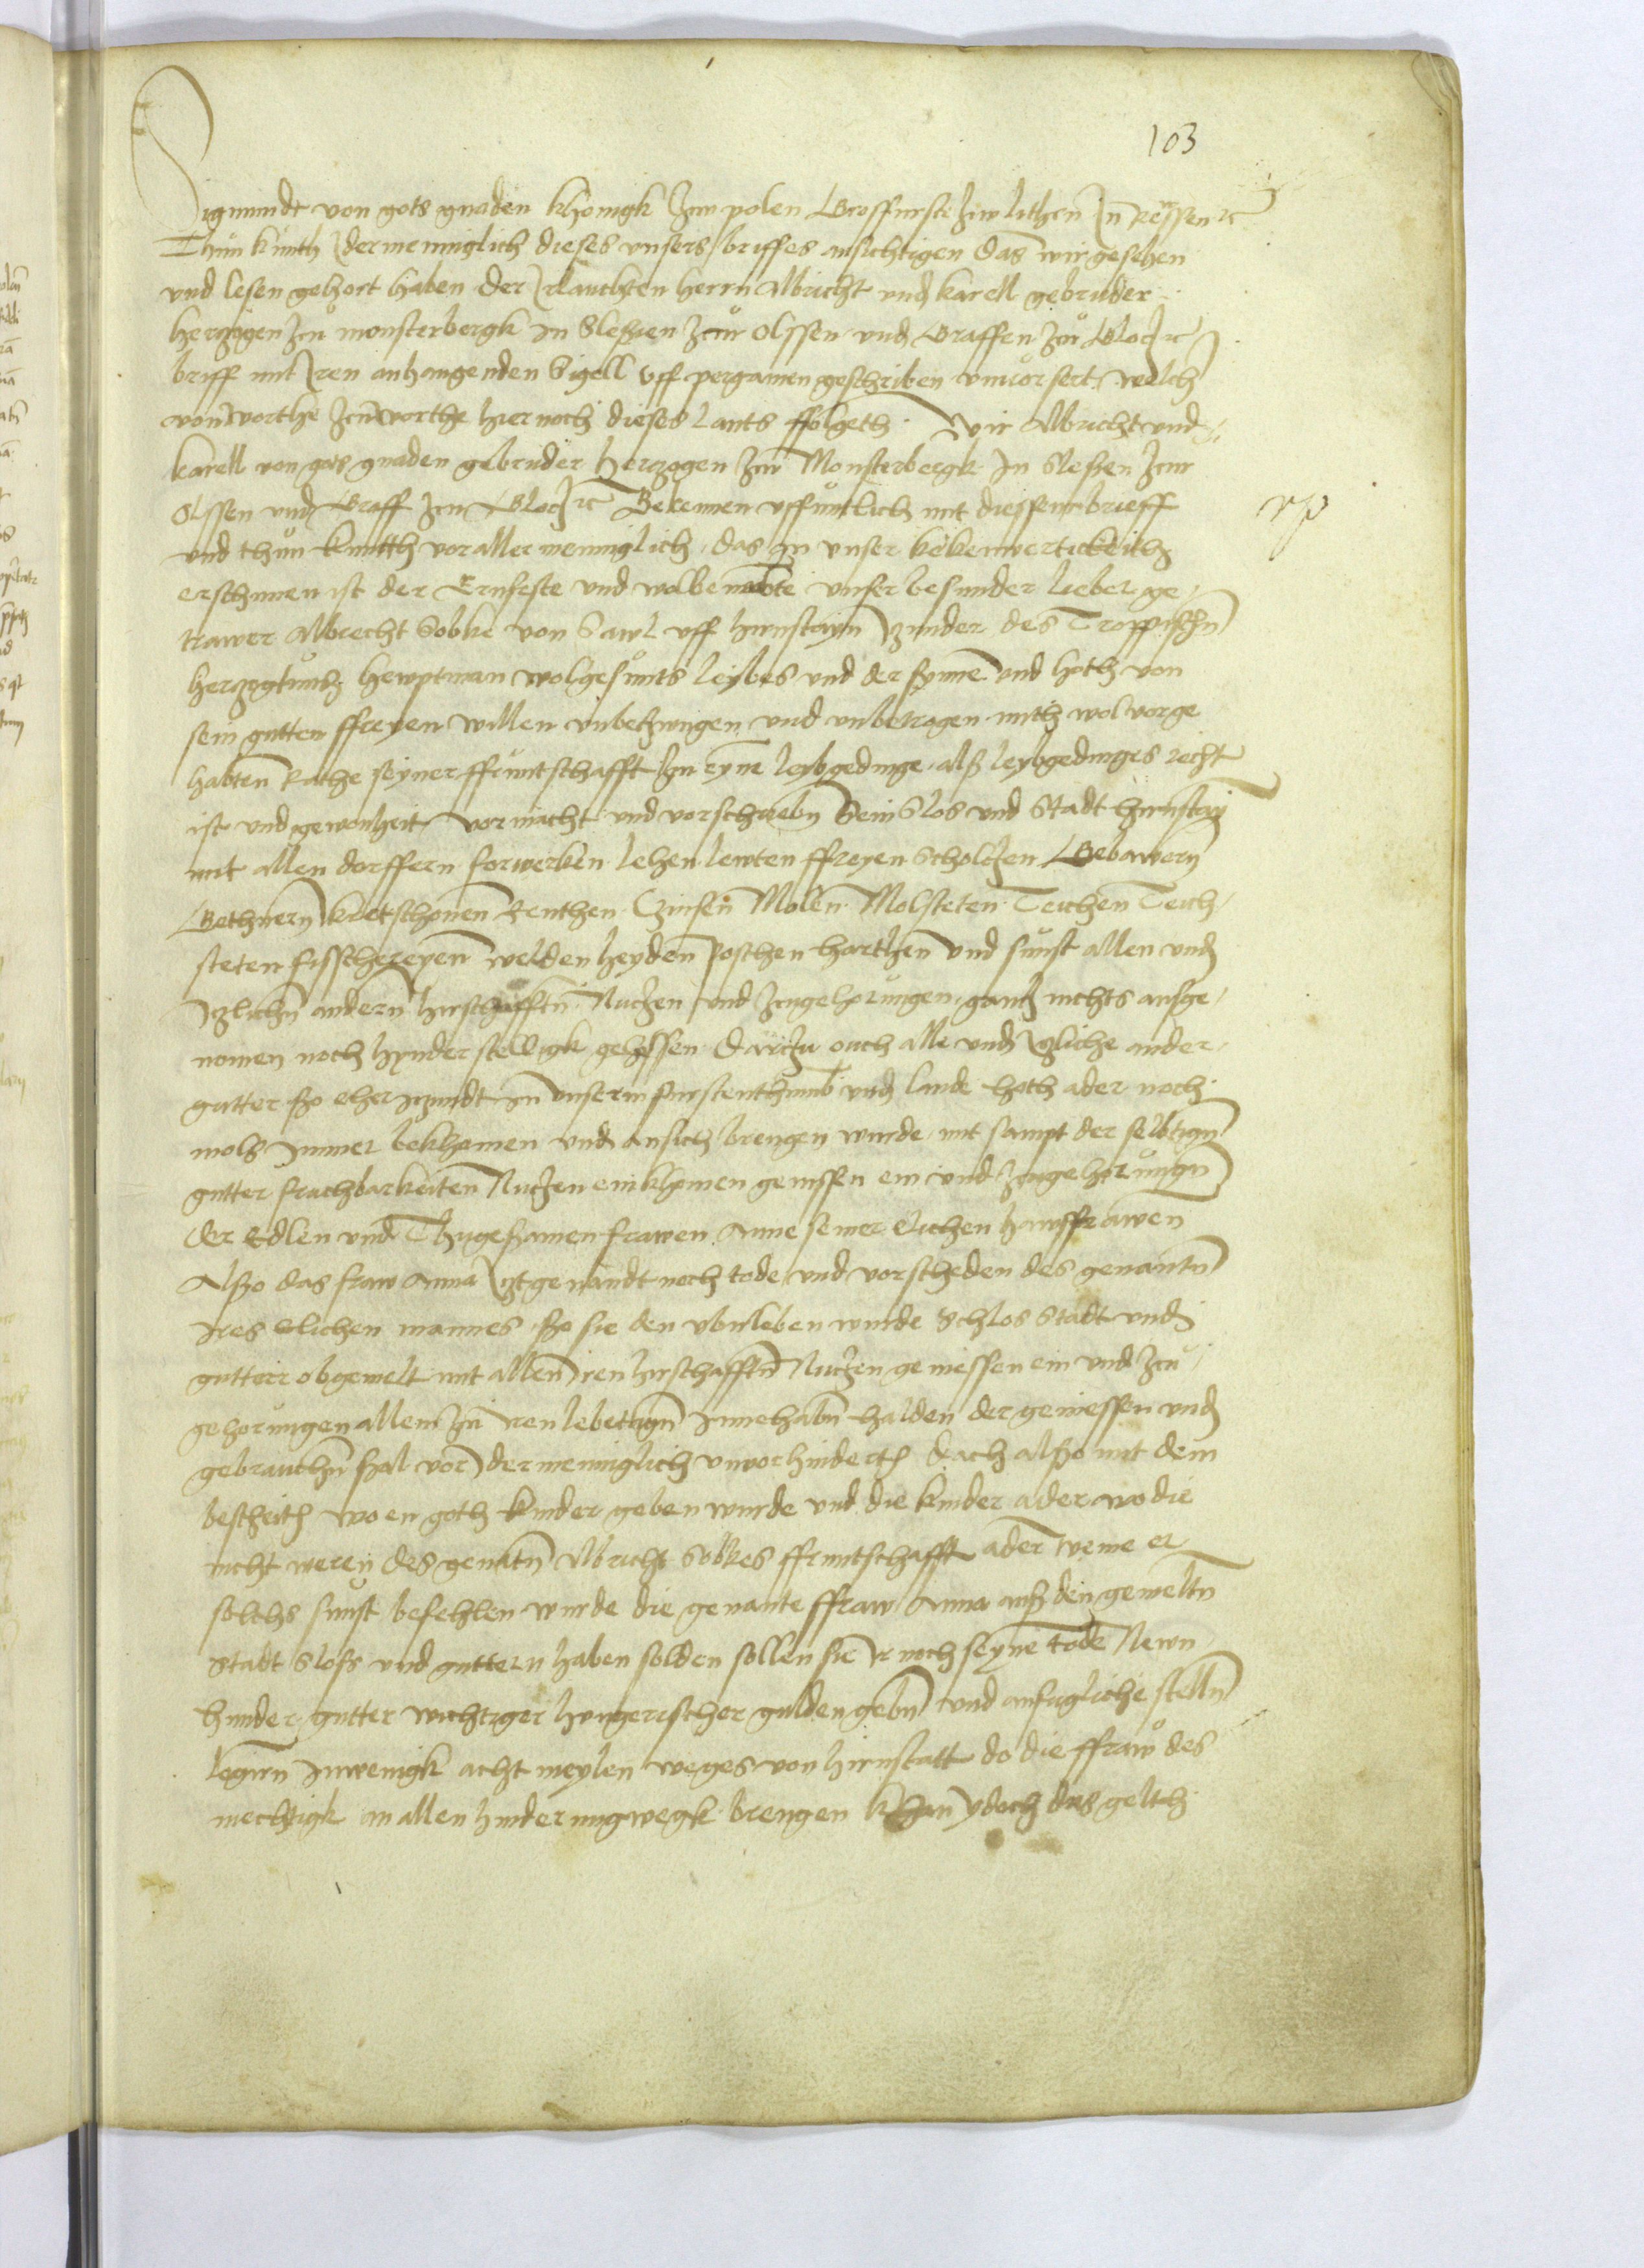 103
Sigmundt von gots gnaden khonigk zcw polen Grosfurste zcw lithen in Rewssen etc
Thun kunth idermenniglich dieses unsers briffes ansichtigen das wir gesehen
und lesen gehort haben der irlauchten herrn Albricht und karell gebruder
herczogen zcu monsterbergk in Slesien zcur Olssen und Graffen zcu Glocz etc
briff mit iren anhangenden Sigell uff pergamen geschriben unvorsert welch
von worthe zcu worthe hier noch dieses lauts ffolgeth Wir Albricht und
karell von gots gnaden gebruder herczogen zcu Monsterbergk in Slesien zcur
Olssen und Graff zcu Glocz etc Bekennen uffintlich mit diessem brieff
und thun kuntth vor aller menniglich das in unser kekenwertickeith
erschinnen ist der Ernfeste und wolbenante unser besunder lieber ge
trawer Albrecht Sobke von Sawl uff hirnstayn iczunder des Troppischen
herczogtumbs hewptman wolgesunts leybes und der synne und hoth von
sein gutten ffreyen willen unbeczwungen und unbetrogen mith wolvorge
habten Rathe seyner ffruntschafft in eyne leybgedinge alß leybgedinges recht
ist und gewonheit vormacht und vorschrieben Sein Slos und Stadt hirnstayn
mit allen dorffern forwerken lehen lewten ffreyen Scholczen Gebawern
Gethnern kretschonen Renthen Czinsen Molen Molsteten Teichen Teich
steten fisschereyen welden heyden poschen harthen und sunst allen und
iczlichen andern hirschafften Nuczen und zcugehorungen gancz nichts ausge
nomen noch hynderstelligk gelossen Darczu ouch alle und iczliche ander
gutter szo eher iczundt in unserm furstenthumb und lande hoth ader noch
mols immer bekhomen und an sich brengen wurde mit sampt der selbtigen
gutter fruchbarkeiten Nuczen einkhomen genissen ein und zcugehorungen
Der Edlen und Thugesamen frawen Anne seiner elichen hawsfrawen
Alszo das fraw Anna iczt genandt noch tode und vorscheden des genanten
ires elichen mannes szo sie den ubirleben wurde Schlos Stadt und
gutterr obgemelt mit allen iren hirschafften Nuczen geniessen ein und zcu
gehorungen allen zcu iren lebetagen innehaben halden der geniessen und
gebrauchen szal vor idermenniglich unvorhindert Doch alszo mit dem
bescheith wo en goth kinder geben wurde und die kinder ader wo die
nicht weren des genaten Albricht Sobkes ffruntschafft ader weme er
solchs sunst befehlen wurde die genante ffraw Anna auß den gemelten
Stadt Sloss und guttern haben solden sollen sie ir noch seyne tode Newn
hunder gutter wichtiger hungerischer gulden geben und ansugliche stellen
legirn inwenigk acht meylen weges von hirnstatt do die ffraw des
mechtigk an allen hinderung wegk brengen khan ydoch das gelth